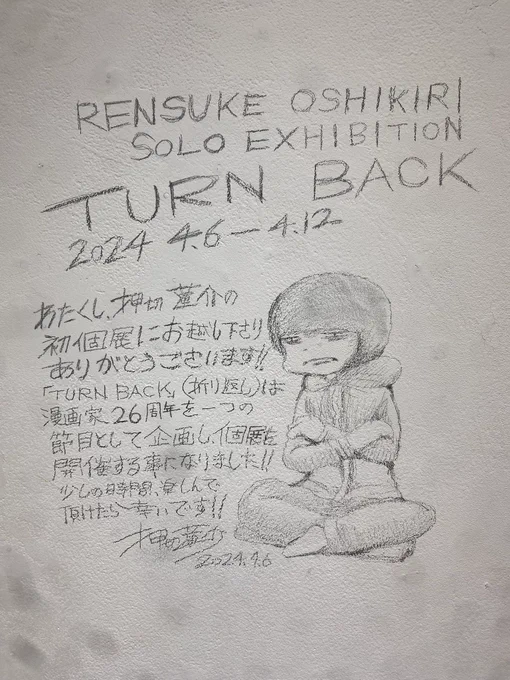 RENSUKE OSHIKIRI
SOLO EXHIBITION
TURN BACK
2024 4.6-4.12
あたくし、押切蓮介の
初個展にお越し下さり
ありがとうございます!!
「TURN BACK」(折り返し)は
漫画家26周年を一つの
節目として企画し、個展を
開催する事になりました!!
少しの時間、楽しんで
頂けたら幸いです!!
押切蓮介
2024.4.6